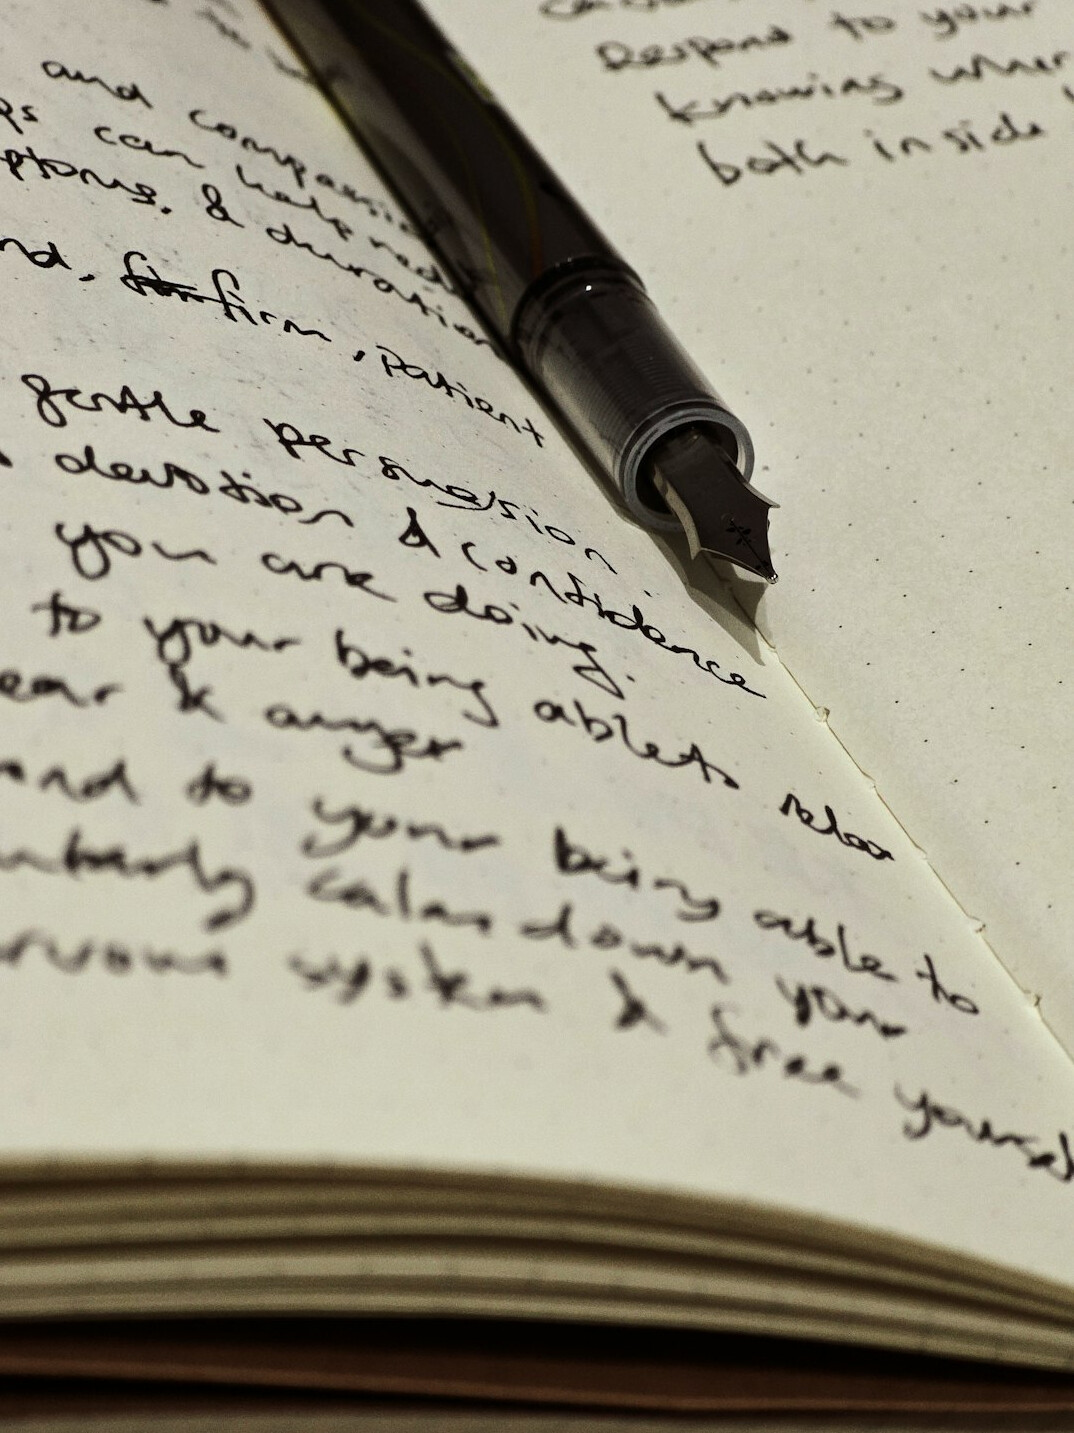 and compassion
ps can help reduce
ptoms. & duration
nd. firm, patient
gentle persuasion.
devotion & confidence
you are doing.
to your being able to relax
ear & anger
ond to your being able to
calm down your
ervous system & free yoursel
Respond to your
knowing wher
both inside